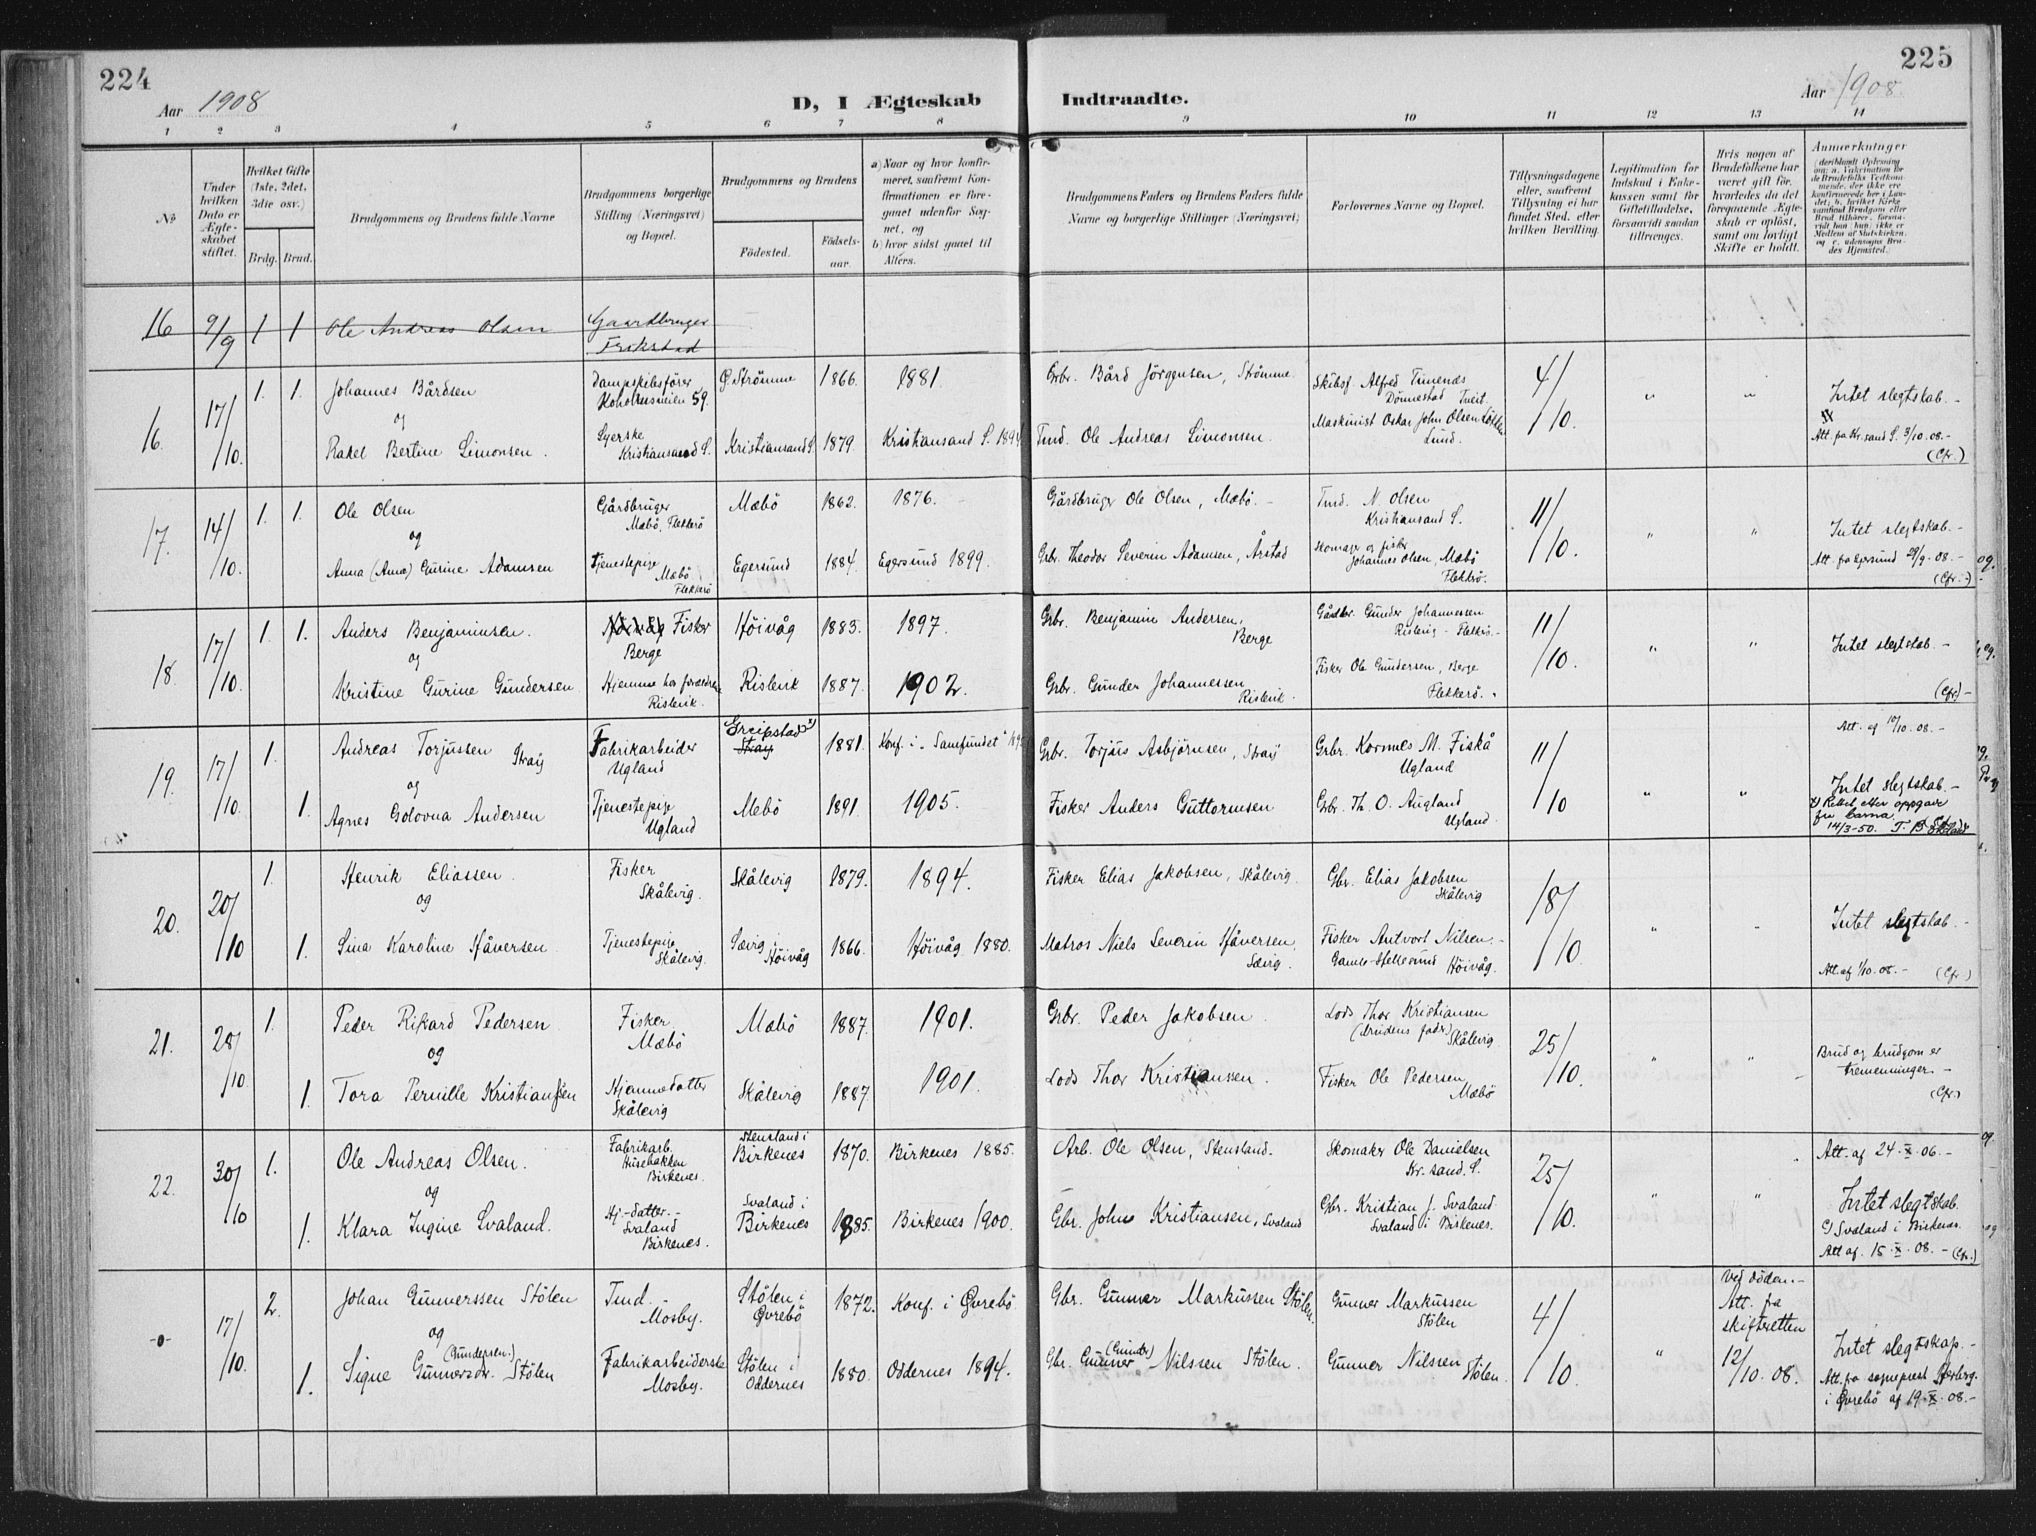 224
225
Aar 1908
D, I Ægteskab Indtraadte.
Aar 1908
1 2 3 4 5 6 7 8 9 10 11 12 13 14
No
Under hvilken Dato er Ægteskabet stiftet.
Hvilket Gifte (1ste, 2det, 3die osv.)
Brdg. Brud.
Brudgommens og Brudens fulde Navne
Brudgommens borgerlige Stilling (Næringsvei) og Bopæl.
Brudgommens og Brudens
Fødested.
Fødselsaar.
a) Naar og hvor konfirmeret, saafremt Konfirmationen er foregaaet udenfor Sognet, og
b) hvor sidst gaaet til Alters.
Brudgommens Faders og Brudens Faders fulde Navne og borgerlige Stillinger (Næringsvei)
Forlovernes Navne og Bopæl.
Tillysningsdagene eller, saafremt Tillysning ei har fundet Sted, efter hvilken Bevilling.
Legitimation for Indskud i Enkekassen samt for Giftetilladelse, forsaavidt saadan tiltrænges.
Hvis nogen af Brudefolkene har været gift før, hvorledes da det foregaaende Ægteskab er opløst, samt om lovligt Skifte er holdt.
Anmerkninger
16 9/9 1 1 Ole Andreas Olsen Gaardbruger
16. 17/10. 1. 1. Johannes Bårdsen Dampskibsfører 59. O. Strømme 1866. 1881. Grbr. Bård Jörgensen, Strömme Skibsf. Alfred Timenes 4/10. Intet slegtskab. -
og
Rakel Bertine Simonsen. Syerske Kristiansand S. Kristiansand S. 1879. Kristiansand S. 1894 Tmd. Ole Andreas Simonsen. Maskinist Oskar John Olsen Lund. Att. fra Kr.sand S. 3/10.08.- (Cfr.)
17. 14/10. 1. 1. Ole Olsen Gårdbruger Mæbö, Flekkerö Mæbö 1862. 1876. Gårdbruger Ole Olsen, Mæbö. - Tmd. N. Olsen Kristiansand S. 11/10. " " Intet slegtskab. -
og
Anna (Anna) Gurine Adamsen Tjenestepige Mæbö Flekkerö Egersund 1884. Egersund 1899. Grb. Theodor Severin Adamsen, Årstad Skomager og fisker Johannes Olsen, Mæbö Flekkerö. Att. fra Egersund 29/9-08.- (Cfr.-)
18. 17/10. 1. 1. Anders Benjaminsen. Fisker Berge Höivåg 1883. 1897. Grbr. Benjamin Andersen, Berge Gårdbr. Gunder Johannessen 11/10. " " Intet slegtskab. -
og
Kristine Gurine Gundersen Hjemme hos forældrene Rislevik. Rislevik 1887. 1902. Grbr. Gunder Johannessen Rislevik. Fisker Ole Gundersen, Berge Flekkerö. (Cfr) -
19. 17/10. 1. Andreas Torjussen Straiy Fabrikarbeider Ugland Greipstad x) Stray 1881. Konf. i "Samfundet" 1895 Grbr. Torjus Asbjörnsen, Straiy Grbr. Kornnes M. Fiskå Ugland 11/10 " " Att. af 10/10.08. -
og
1. Agnes Golovna Andersen Tjenestepige Ugland Mebö 1891. 1905. Fisker Anders Guttormsen Grbr. Th. O. Augland Ugland. Intet slegtskab. -
x) Rettet efter oppgave fra
14/3-50.
20. 20/10 1. Henrik Eliassen. Fisker Skålevig. Skålevig 1879. 1894. Fisker Elias Jakobsen, Skålevig. Gbr. Elias Jakobsen Skålevig 18/10. " Intet slegtskab. -
og
1. Sina Karoline Håversen. Tjenestepige Skålevig. Sævig i Höivåg 1866. Höivåg 1880. Matros Niels Severin Håversen, Sævig. Fisker Antvort Nilsen. - Gamle-Hellesund Höivåg. Att. af 1/10.08. - (Cfr)
21. 28/10. 1. Peder Rikard Pedersen Fisker Mæbö Mæbö 1887. 1901. Grbr. Peder Jakobsen. Lods Thor Kristiansen (brudens fader) Skålevig. 25/10. " "
og
1. Tora Pernille Kristianssen Hjemmedatter Skålevig Skålevig 1887 1901. Lods Thor Kristianssen. Fisker Ole Pedersen Mæbö Brud og brudgom er tremenninger. - (Cfr.)
22. 30/10 1. Ole Andreas Olsen. Fabrikarb. Birkenes. Stensland i Birkenes 1870. Birkenes 1885. Arb. Ole Olsen, Stensland. Skomaker Ole Danielsen Kr.sand. S. 25/10. " " Att. af 24.X.06. -
og
1. Klara Ingine Svaland. Hj.-datter. - Svaland Birkenes. Svaland i Birkenes 1885. Birkenes 1900. Gbr. Johns Kristiansen, Svaland Gbr. Kristian J. Svaland Svaland i Birkenes. Intet slegtskab.
Svaland i Birkenes.
Att af. 15.X.08. - (Cfr.)
-o- 17/10. 2. Johan Gunnerssen Stölen Tmd. Mosby. Stölen i Øvrebö 1872. Konf. i Øvrebö Gbr. Gunner Markussen Stölen. Gunner Markussen Stölen 4/10. " Att. fra skifteretten 12/10.08.
og
1. Signe Gunnersdr. (Gundersen.) Stölen Fabrikarbeiderske Mosby. Stölen i Oddernes 1880. Oddernes 1894. Gbr. Gunner (Gunder) Nilssen Stölen. Gunner Nilssen Stölen. Intet slegtskap. -
Att. fra sogneprest
i Øvrebö af 19.X.08.-